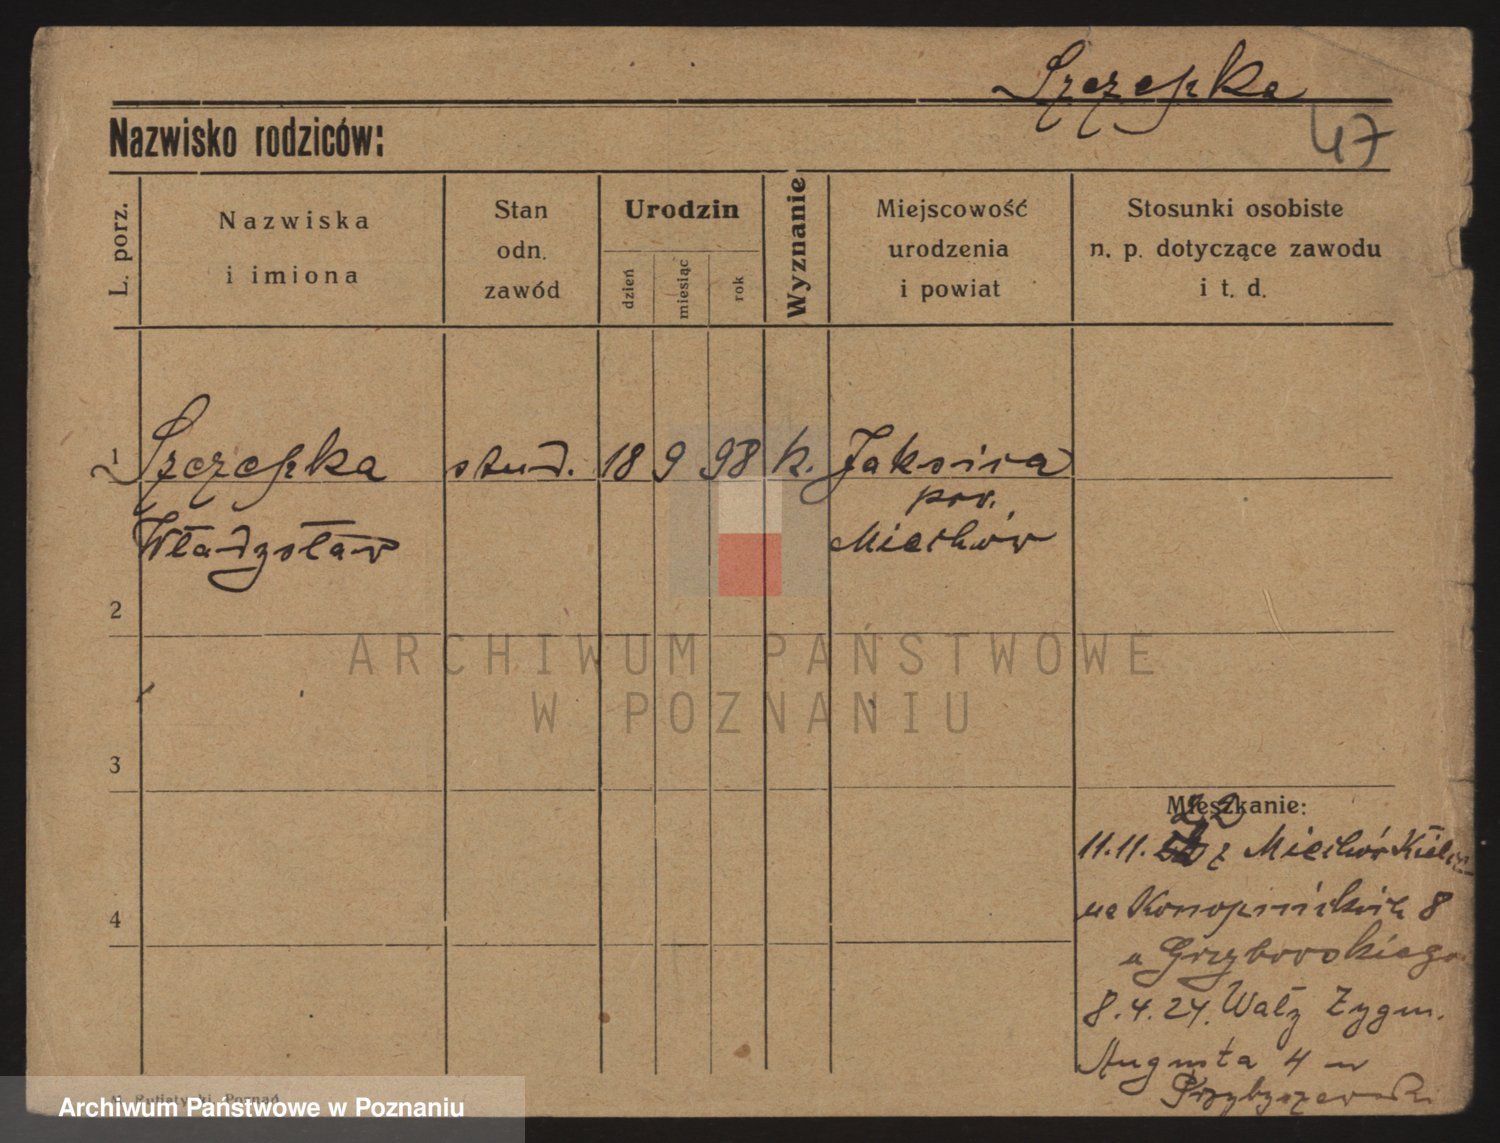 Szczepka
Nazwisko rodziców:
47
L. porz.
Nazwiska
i imiona
Stan
odn.
zawód
Urodzin
dzień
miesiąc
rok
Wyznanie
Miejscowość
urodzenia
i powiat
Stosunki osobiste
n. p. dotyczące zawodu
i t. d.
1 Szczepka stud. 18 9 98 k. Jaksice
pow.
Władysław Miechów
2
ARCHIWUM PAŃSTWOWE
W POZNANIU
3
Mieszkanie:
22
11.11. z Miechów Kielc
4
8
u Grzybowskiego
8.4.24. Wały Zygm.
Augusta 4 u
Przybyszewski
Poznań
Archiwum Państwowe w Poznaniu